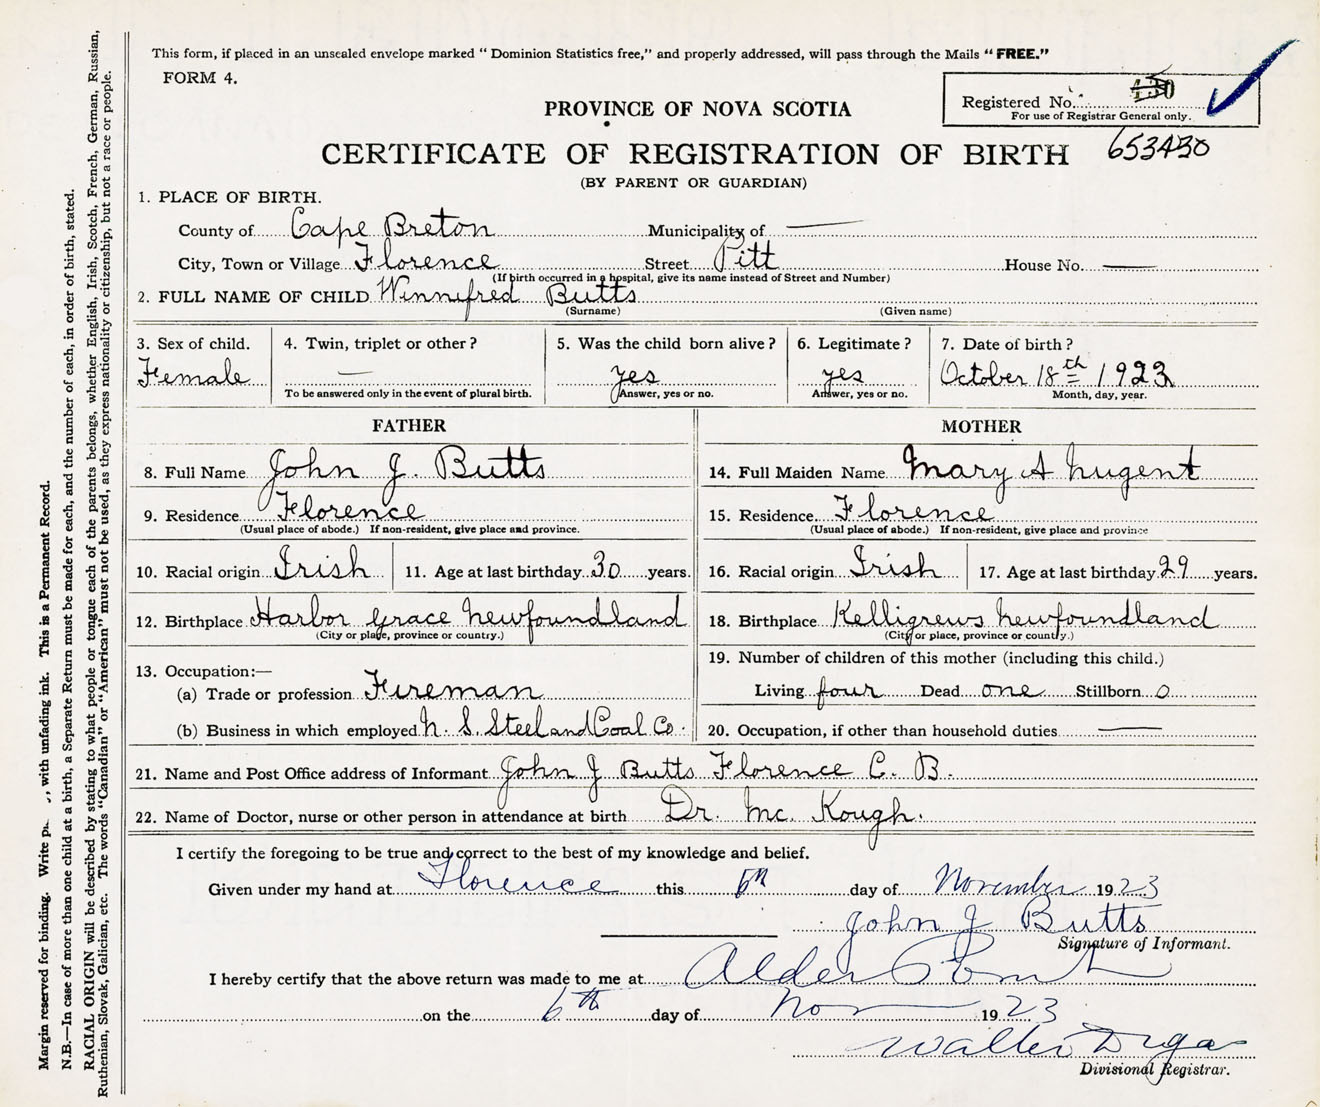 This form, if placed in an unsealed envelope marked “ Dominion Statistics free,” and properly addressed, will pass through the Mails “ FREE.”
FORM 4.
Registered No.
For use of Registrar General only.
653430
PROVINCE OF NOVA SCOTIA
CERTIFICATE OF REGISTRATION OF BIRTH
(BY PARENT OR GUARDIAN)
1. PLACE OF BIRTH.
County of Cape Breton Municipality of —
City, Town or Village Florence Street Pitt House No. —
(If birth occurred in a hospital, give its name instead of Street and Number)
2. FULL NAME OF CHILD Winnifred Butts
(Surname) (Given name)
3. Sex of child. 4. Twin, triplet or other ? 5. Was the child born alive ? 6. Legitimate ? 7. Date of birth ?
Female — yes yes October 18th 1923
To be answered only in the event of plural birth. Answer, yes or no. Answer, yes or no. Month, day, year.
FATHER MOTHER
8. Full Name John J. Butts 14. Full Maiden Name Mary A Nugent
9. Residence Florence 15. Residence Florence
(Usual place of abode.) If non-resident, give place and province. (Usual place of abode.) If non-resident, give place and province
10. Racial origin Irish 11. Age at last birthday 30 years. 16. Racial origin Irish 17. Age at last birthday 29 years.
12. Birthplace Harbor Grace Newfoundland 18. Birthplace Kelligrews Newfoundland
(City or place, province or country.) (City or place, province or country.)
13. Occupation:— 19. Number of children of this mother (including this child.)
(a) Trade or profession Fireman Living four Dead one Stillborn 0
(b) Business in which employed N. S. Steel and Coal Co. 20. Occupation, if other than household duties —
21. Name and Post Office address of Informant John J Butts Florence C. B.
22. Name of Doctor, nurse or other person in attendance at birth Dr. Mc. Kough.
I certify the foregoing to be true and correct to the best of my knowledge and belief.
Given under my hand at Florence this 6th day of November 1923
John J Butts
Signature of Informant.
I hereby certify that the above return was made to me at Alder Point
on the 6th day of Nov 1923
Walter
Divisional Registrar.
Margin reserved for binding. Write , with unfading ink. This is a Permanent Record.
N.B.—In case of more than one child at a birth, a Separate Return must be made for each, and the number of each, in order of birth, stated.
RACIAL ORIGIN will be described by stating to what people or tongue each of the parents belongs, whether English, Irish, Scotch, French, German, Russian,
Ruthenian, Slovak, Galician, etc. The words “Canadian” or “American” must not be used, as they express nationality or citizenship, but not a race or people.